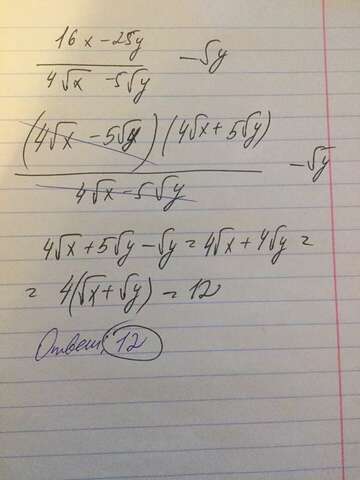 16x - 25y
4√x - 5√y - √y
(4√x - 5√y)(4√x + 5√y)
4√x - 5√y - √y
4√x + 5√y - √y = 4√x + 4√y =
= 4(√x + √y) = 12
Ответ: 12